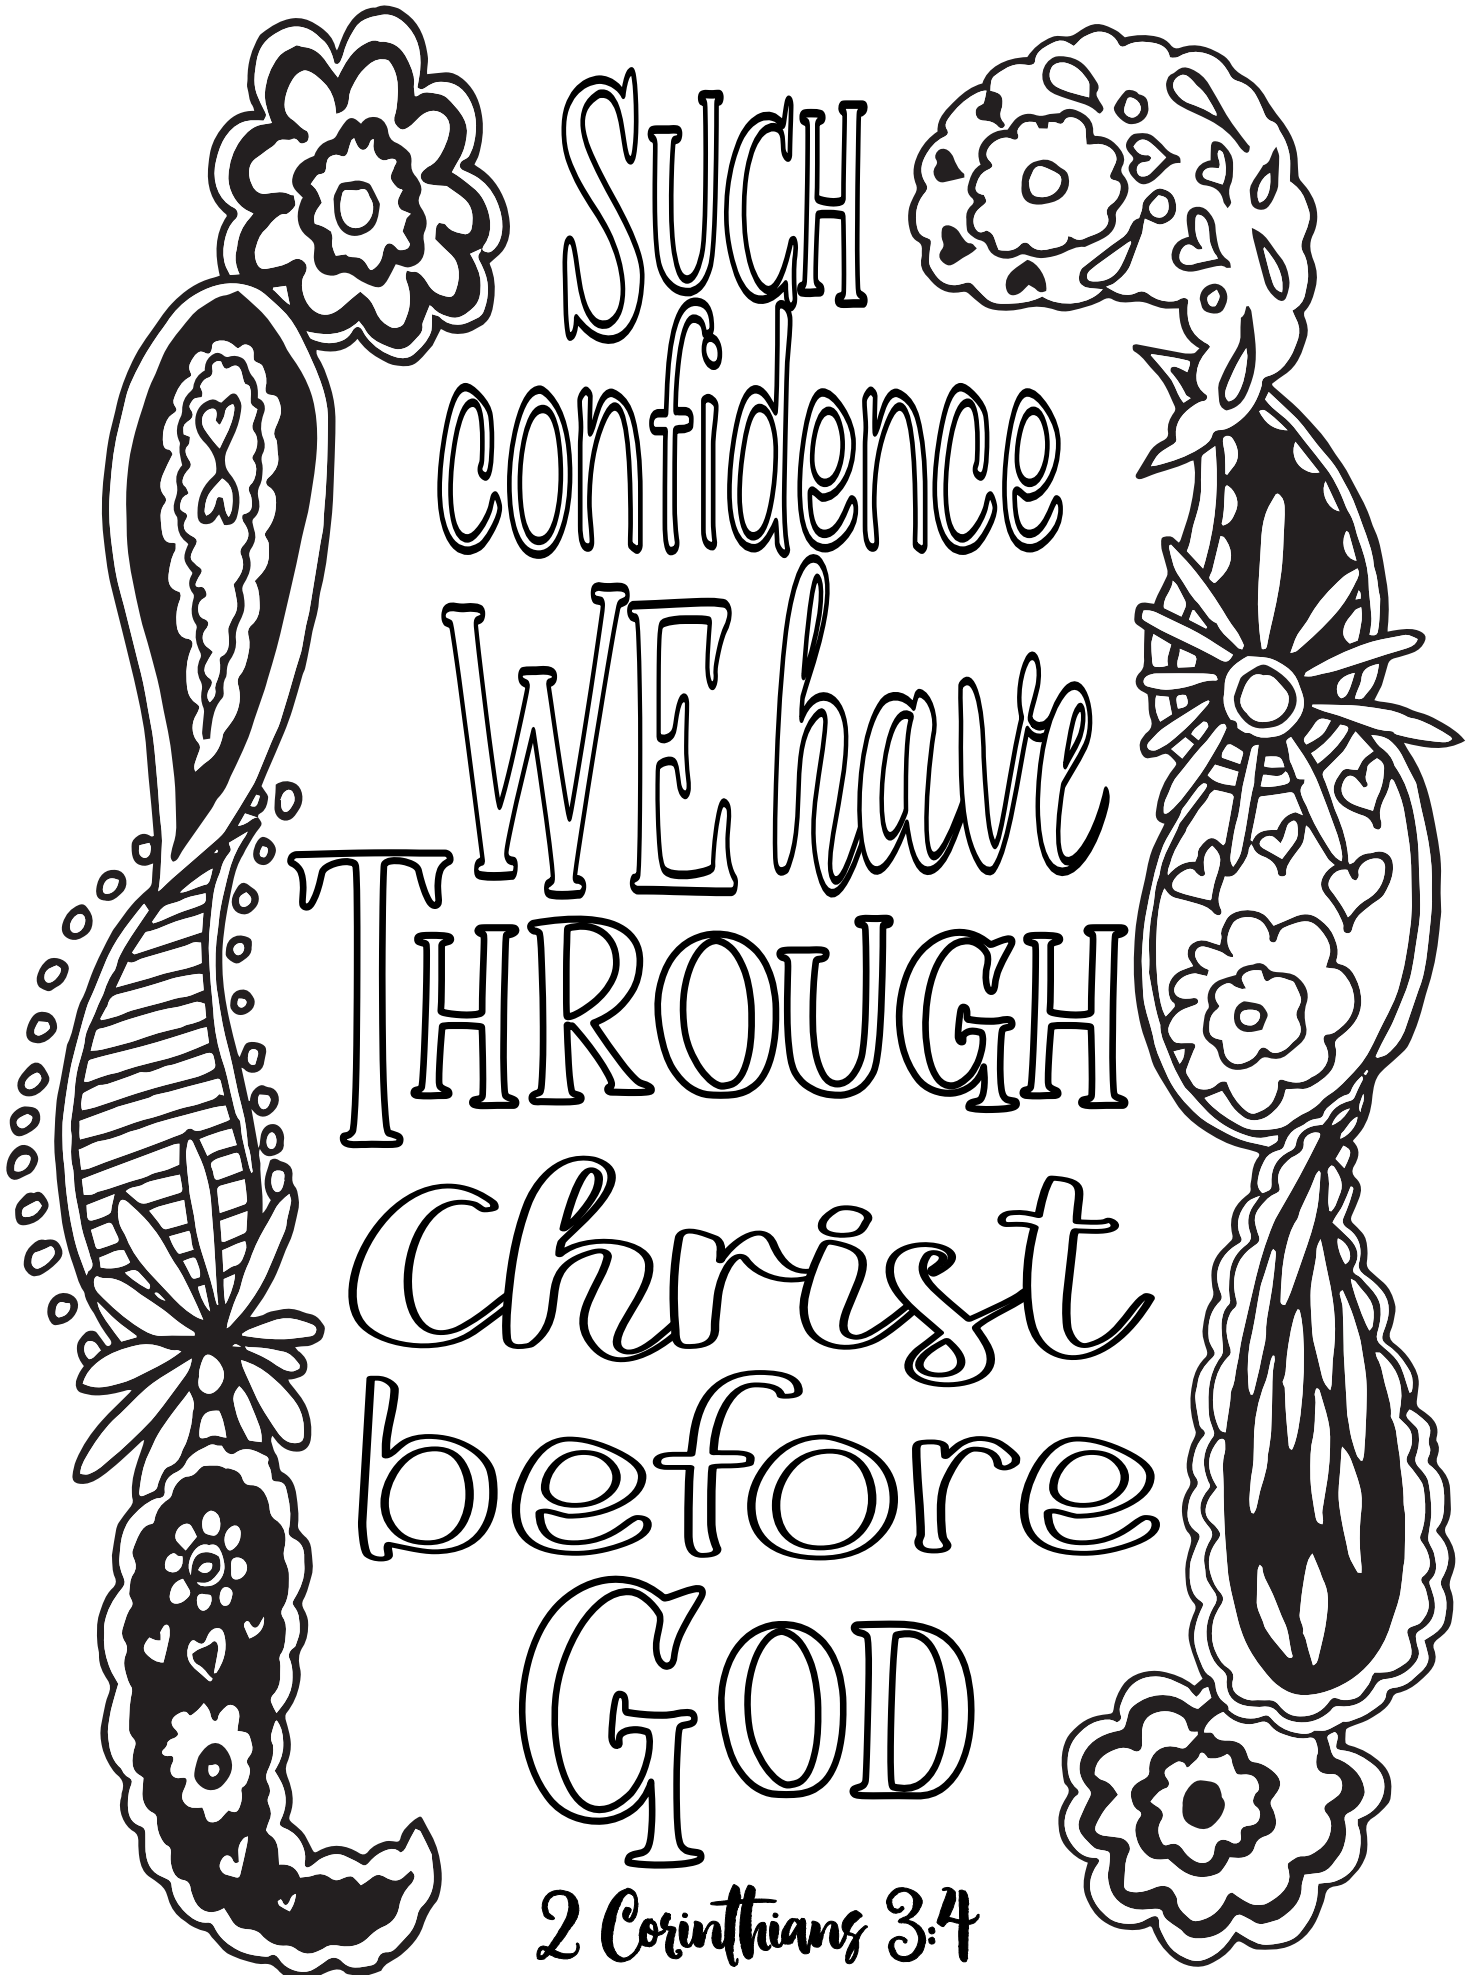 SUCH
confidence
WE have
THROUGH
Christ
before
GOD
2 Corinthians 3:4